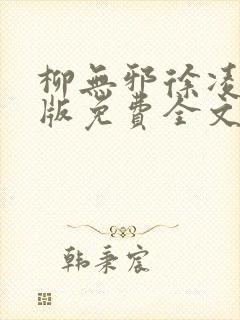 柳無邪徐凌
版免費全文
韩秉宸